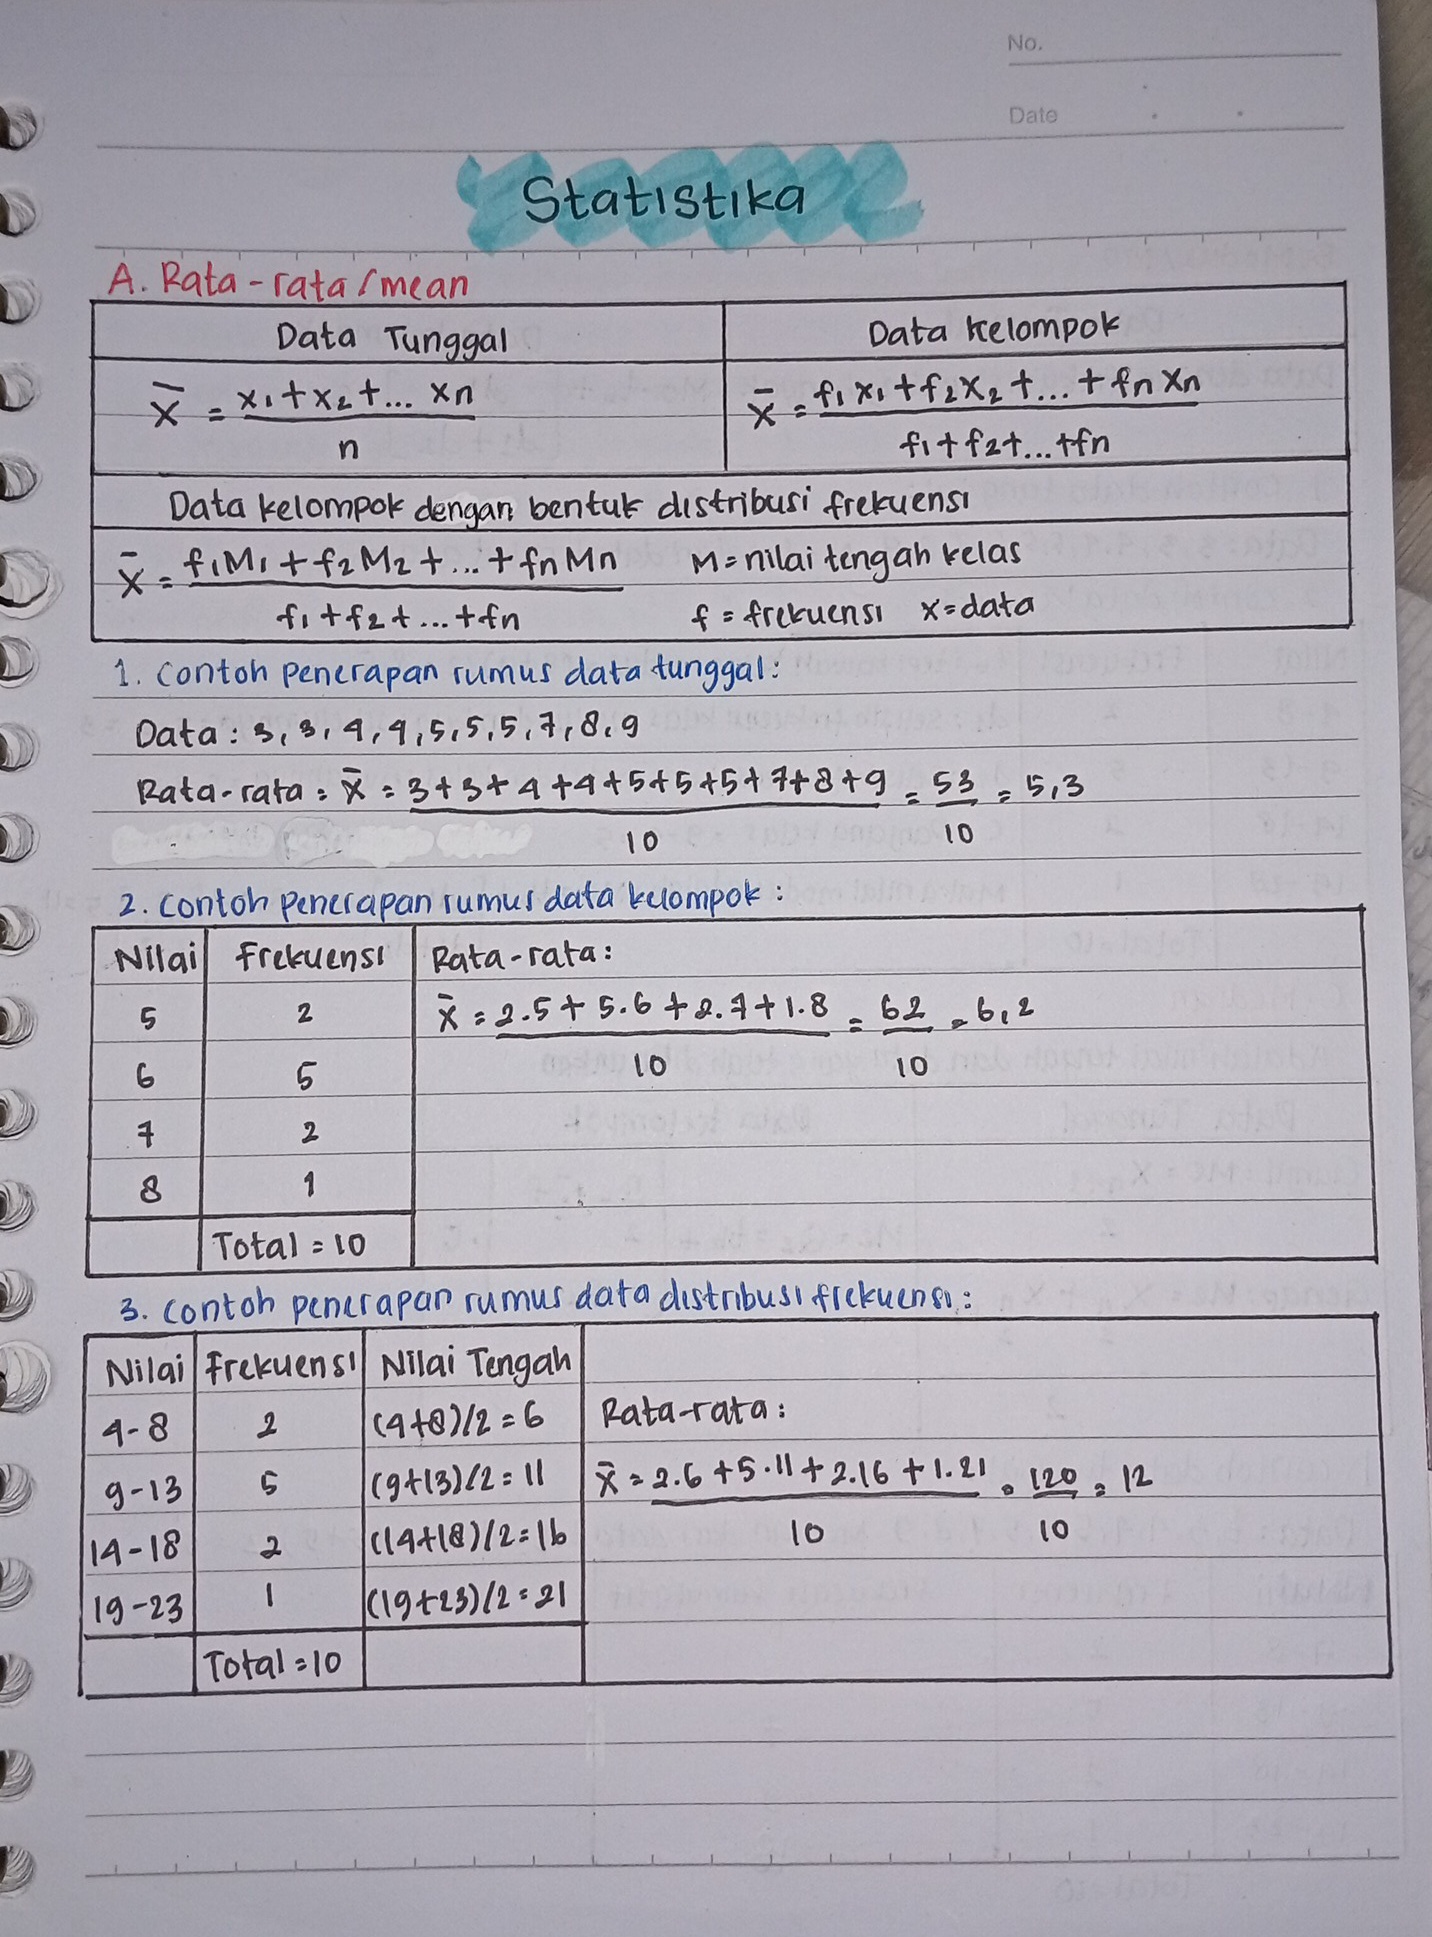 No.
Date
Statistika
A. Rata-rata/mean
Data Tunggal
Data Kelompok
x̄ = x₁+x₂+... xn
n
x̄ = f₁x₁+f₂x₂+...+fn xn
f₁+f₂+...+fn
Data kelompok dengan bentuk distribusi frekuensi
x̄ = f₁M₁+f₂M₂+...+fn Mn
f₁+f₂+...+fn
M=nilai tengah kelas
f = frekuensi x=data
1. Contoh penerapan rumus data tunggal:
Data: 3,3,4,4,5,5,5,7,8,9
Rata-rata = x̄ = 3+3+4+4+5+5+5+7+8+9 = 53 = 5,3
10 10
2. Contoh penerapan rumus data kelompok:
Nilai Frekuensi Rata-rata:
5 2 x̄ = 2.5+5.6+2.7+1.8 = 62 = 6,2
6 5 10 10
7 2
8 1
Total = 10
3. Contoh penerapan rumus data distribusi frekuensi:
Nilai Frekuensi Nilai Tengah
4-8 2 (4+8)/2=6 Rata-rata:
9-13 5 (9+13)/2=11 x̄ = 2.6+5.11+2.16+1.21 = 120 = 12
14-18 2 (14+18)/2=16 10 10
19-23 1 (19+23)/2=21
Total=10